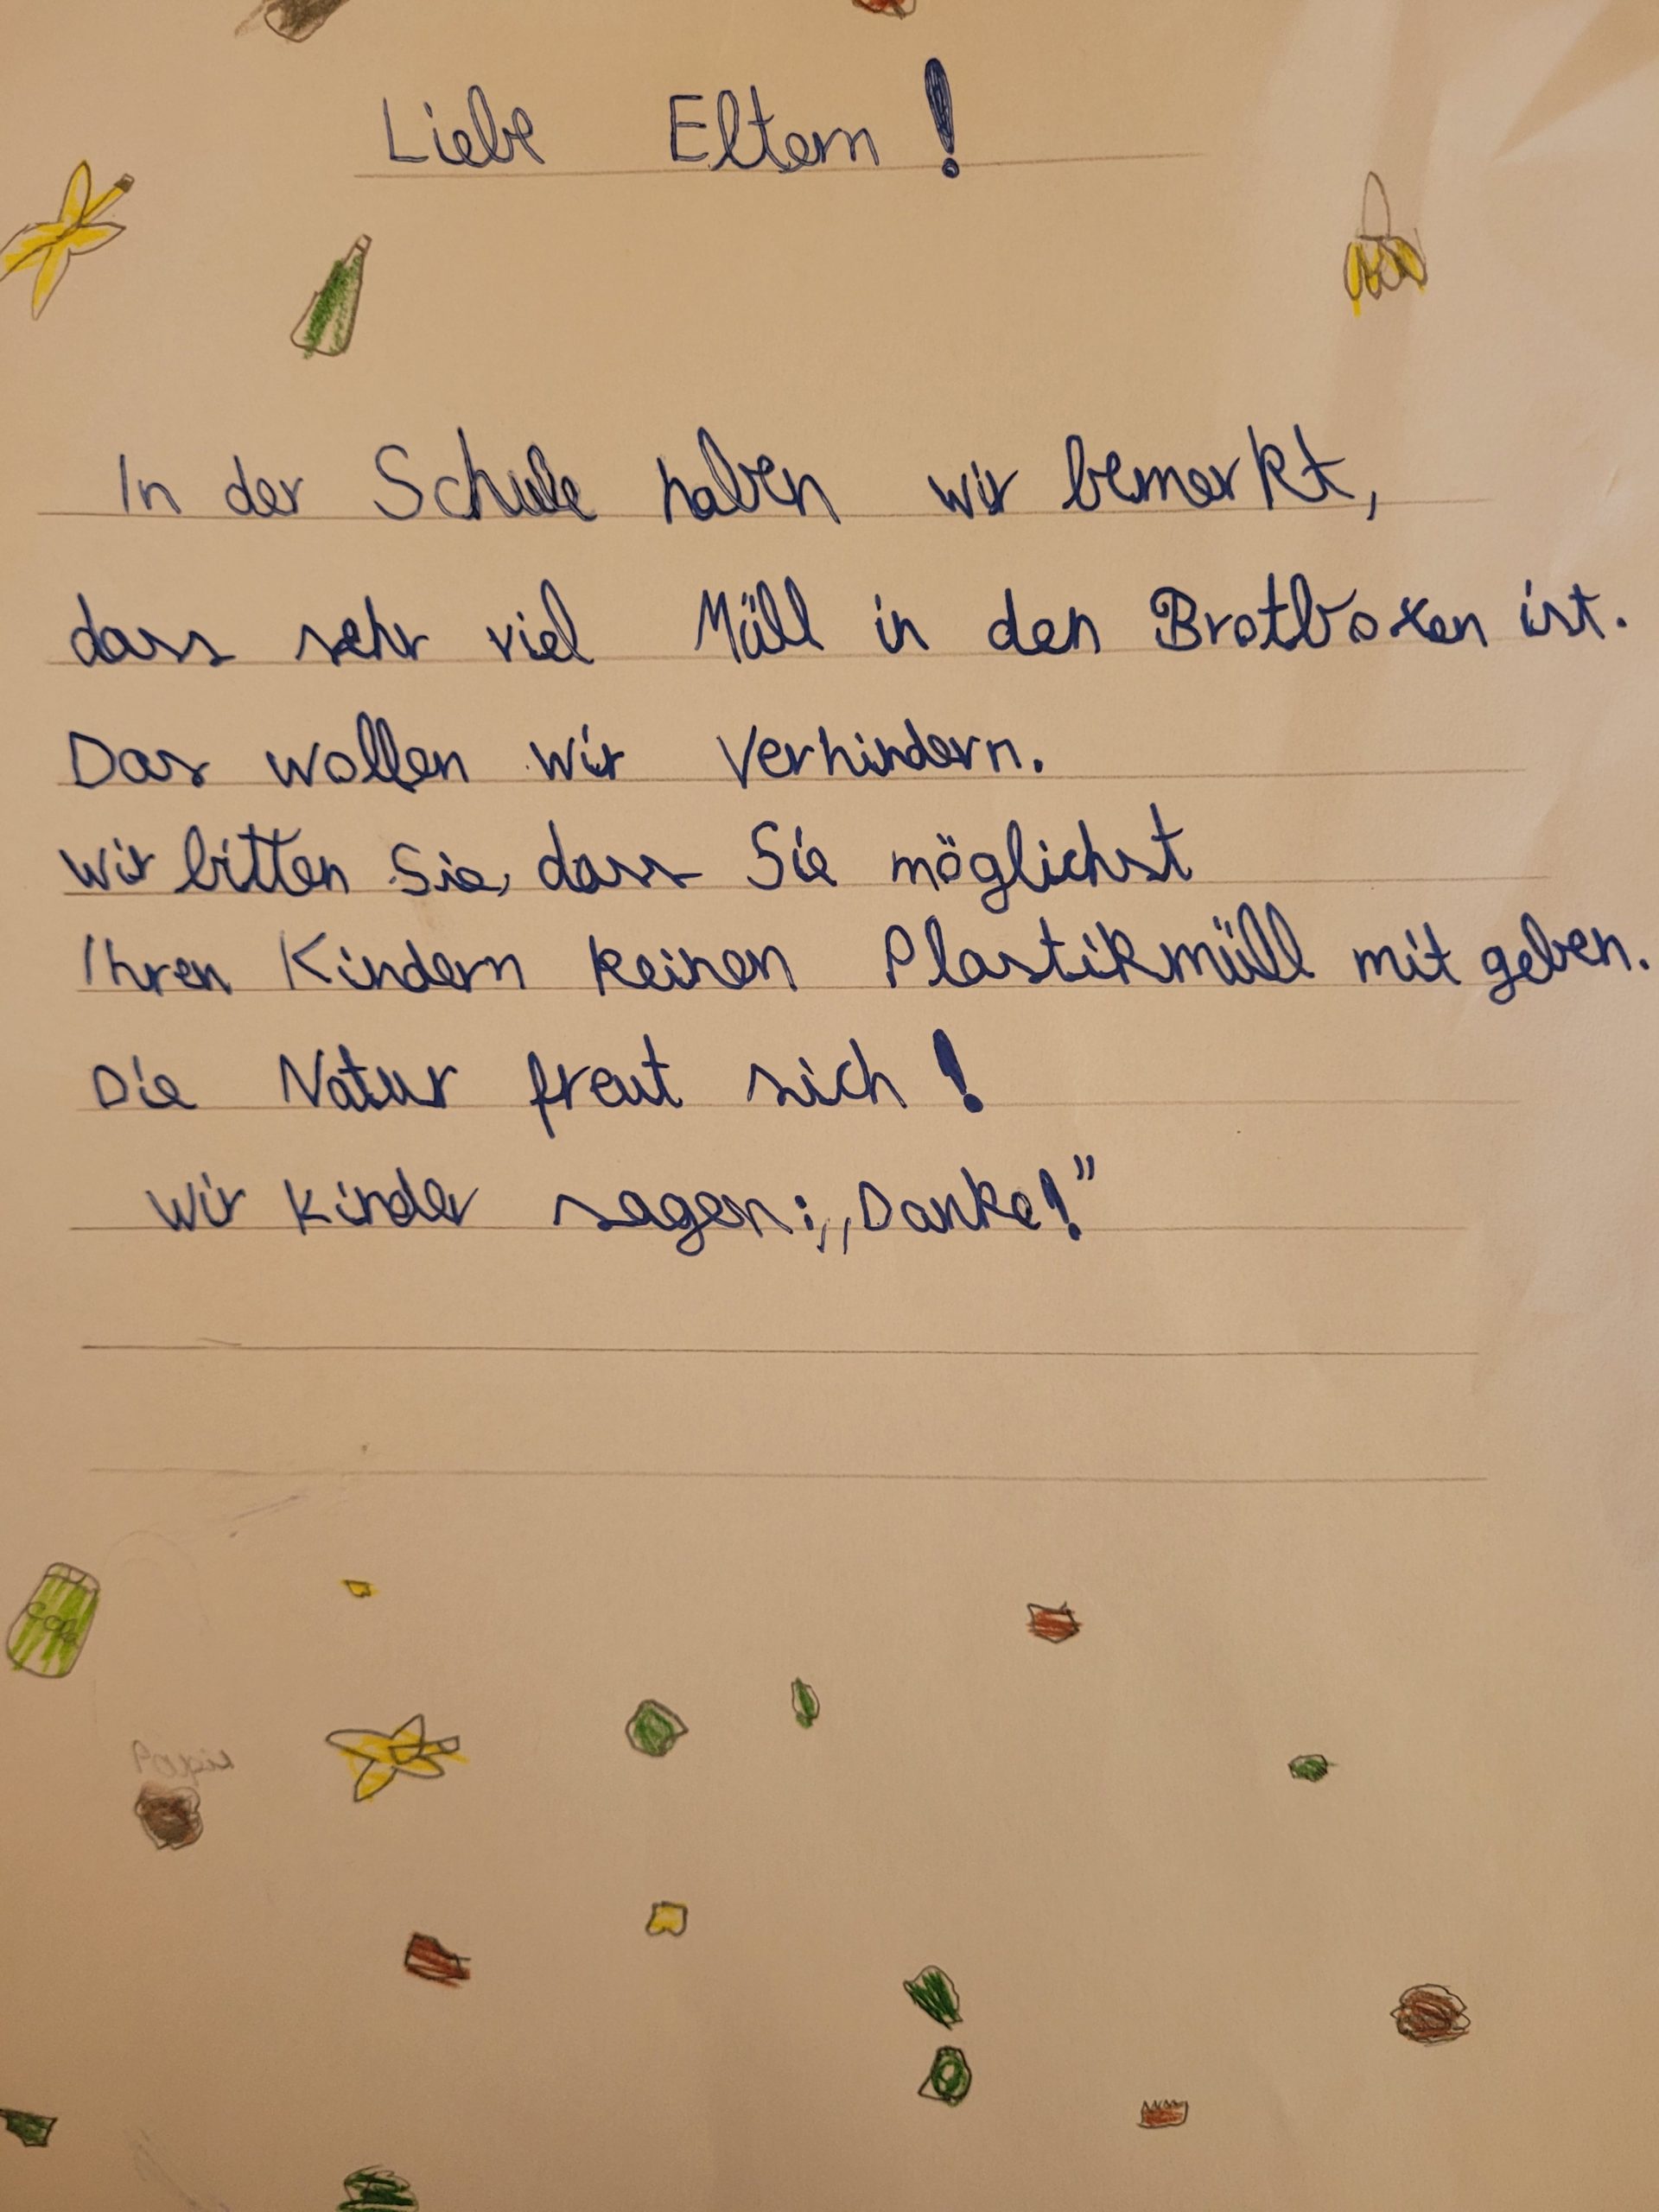 Liebe Eltern!
In der Schule haben wir bemerkt,
dass sehr viel Müll in den Brotboxen ist.
Das wollen wir Verhindern.
Wir bitten Sie, dass Sie möglichst
Ihren Kindern keinen Plastikmüll mit geben.
Die Natur freut sich!
Wir Kinder sagen: „Danke!”
Cola